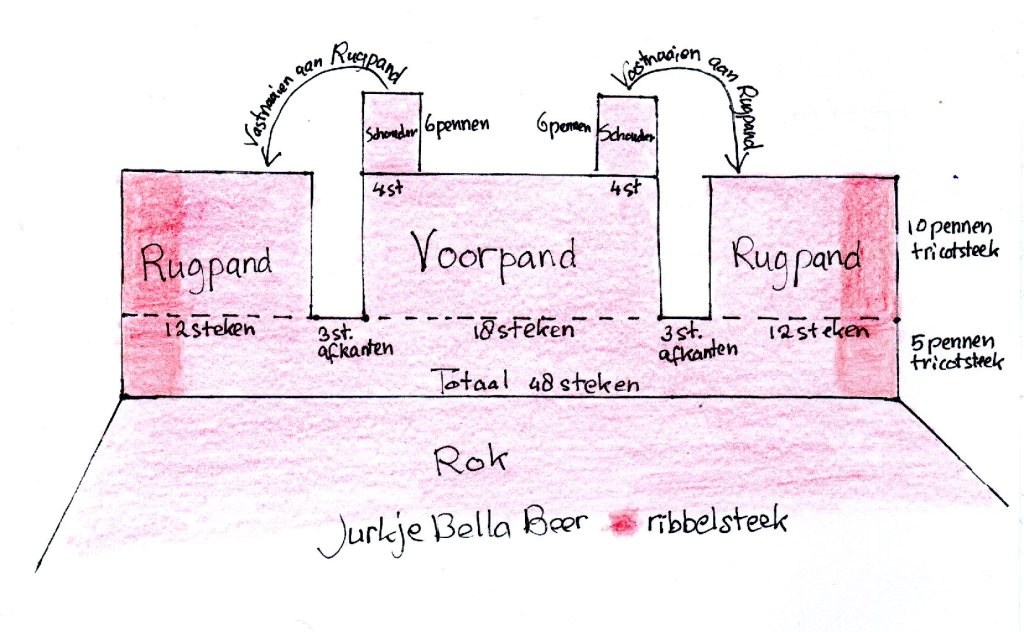 Vastnaaien aan Rugpand
Vastnaaien aan Rugpand
Schouder
6 pennen
6 pennen
Schouder
4 st
4 st
Rugpand
Voorpand
Rugpand
10 pennen
tricotsteek
12 steken
3 st.
afkanten
18 steken
3 st.
afkanten
12 steken
5 pennen
tricotsteek
Totaal 48 steken
Rok
Jurkje Bella Beer
ribbelsteek